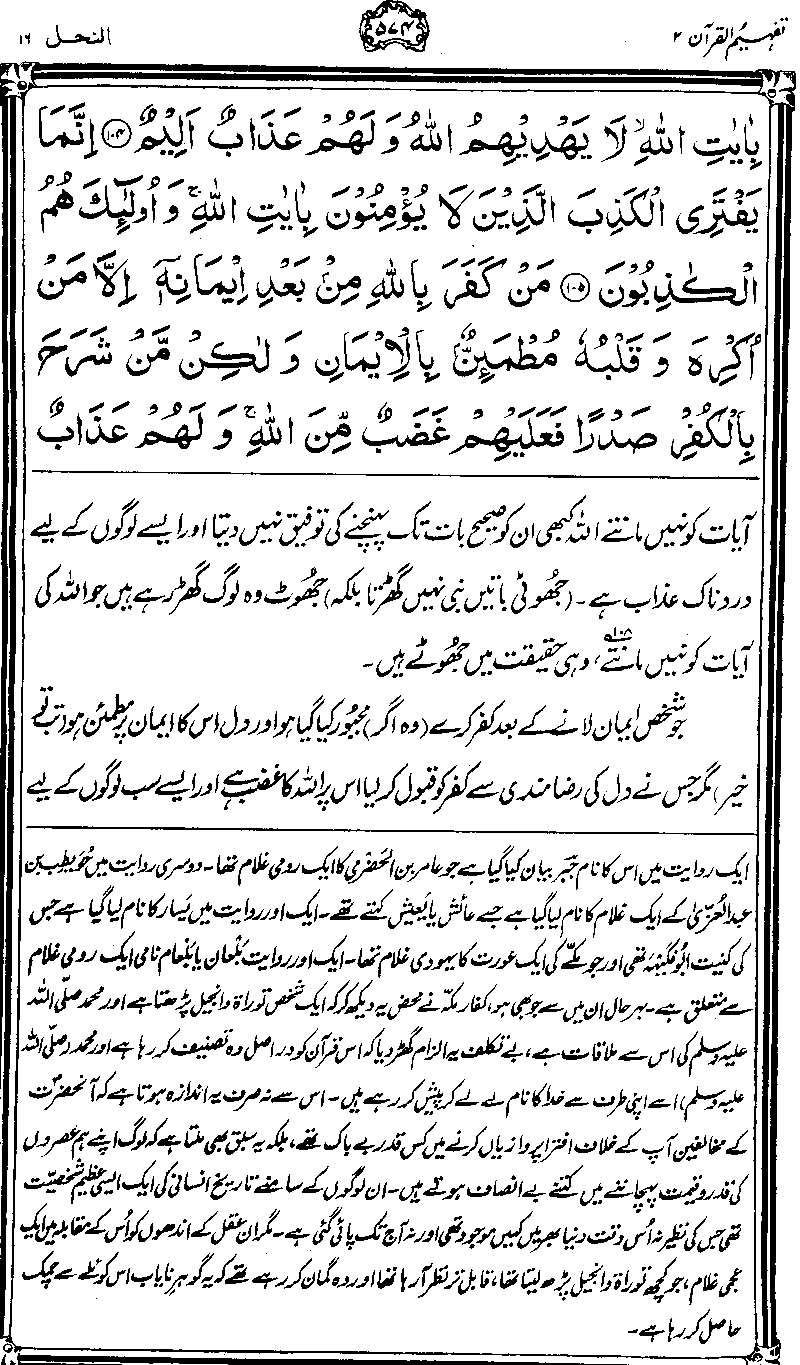 تفہیم القرآن ۲
۵۷۴
النحل ۱۶
بِاٰيٰتِ اللّٰهِ ۙ لَا يَهْدِيْهِمُ اللّٰهُ وَ لَهُمْ عَذَابٌ اَلِيْمٌ ۝۱۰۴ اِنَّمَا
يَفْتَرِى الْكَذِبَ الَّذِيْنَ لَا يُؤْمِنُوْنَ بِاٰيٰتِ اللّٰهِ ۚ وَ اُولٰٓئِكَ هُمُ
الْكٰذِبُوْنَ ۝۱۰۵ مَنْ كَفَرَ بِاللّٰهِ مِنْۢ بَعْدِ اِيْمَانِهٖۤ اِلَّا مَنْ
اُكْرِهَ وَ قَلْبُهٗ مُطْمَئِنٌّۢ بِالْاِيْمَانِ وَ لٰكِنْ مَّنْ شَرَحَ
بِالْكُفْرِ صَدْرًا فَعَلَيْهِمْ غَضَبٌ مِّنَ اللّٰهِ ۚ وَ لَهُمْ عَذَابٌ
آیات کو نہیں مانتے اللہ کبھی ان کو صحیح بات تک پہنچنے کی توفیق نہیں دیتا اور ایسے لوگوں کے لیے
دردناک عذاب ہے۔ (جھوٹی باتیں نبی نہیں گھڑتا بلکہ) جھوٹ وہ لوگ گھڑ رہے ہیں جو اللہ کی
آیات کو نہیں مانتے،۱۰۸ وہی حقیقت میں جھوٹے ہیں۔
جو شخص ایمان لانے کے بعد کفر کرے (وہ اگر) مجبور کیا گیا ہو اور دل اس کا ایمان پر مطمئن ہو (تب تو
خیر) مگر جس نے دل کی رضامندی سے کفر کو قبول کر لیا اس پر اللہ کا غضب ہے اور ایسے سب لوگوں کے لیے
ایک روایت میں اس کا نام جبر بیان کیا گیا ہے جو عامر بن الحضرمی کا ایک رومی غلام تھا۔ دوسری روایت میں حُوَیطِب بن
عبدالعُزّیٰ کے ایک غلام کا نام لیا گیا ہے جسے عائش یا یعیش کہتے تھے۔ ایک اور روایت میں یسار کا نام لیا گیا ہے جس
کی کنیت ابو فکیہہ تھی اور جو مکّے کی ایک عورت کا یہودی غلام تھا۔ ایک اور روایت بلعان یا بلعام نامی ایک رومی غلام
سے متعلق ہے۔ بہرحال ان میں سے جو بھی ہو، کفار مکہ نے محض یہ دیکھ کر کہ ایک شخص توراۃ و انجیل پڑھتا ہے اور محمد صلی اللہ
علیہ وسلم کی اس سے ملاقات ہے، بے تکلف یہ الزام گھڑ دیا کہ اس قرآن کو دراصل وہ تصنیف کر رہا ہے اور محمد (صلی اللہ
علیہ وسلم) اسے اپنی طرف سے خدا کا نام لے لے کر پیش کر رہے ہیں۔ اس سے نہ صرف یہ اندازہ ہوتا ہے کہ آنحضرتؐ
کے مخالفین آپ کے خلاف افترا پردازیاں کرنے میں کس قدر بے باک تھے، بلکہ یہ سبق بھی ملتا ہے کہ لوگ اپنے ہم عصروں
کی قدر و قیمت پہچاننے میں کتنے بے انصاف ہوتے ہیں۔ ان لوگوں کے سامنے تاریخ انسانی کی ایک ایسی عظیم شخصیت
تھی جس کی نظیر نہ اُس وقت دنیا بھر میں کہیں موجود تھی اور نہ آج تک پائی گئی ہے۔ مگر ان عقل کے اندھوں کو اُس کے مقابلہ میں ایک
عجمی غلام، جو کچھ توراۃ و انجیل پڑھ لیتا تھا، قابل تر نظر آ رہا تھا اور وہ گمان کر رہے تھے کہ یہ گوہر نایاب اس کوئلے سے چمک
حاصل کر رہا ہے۔